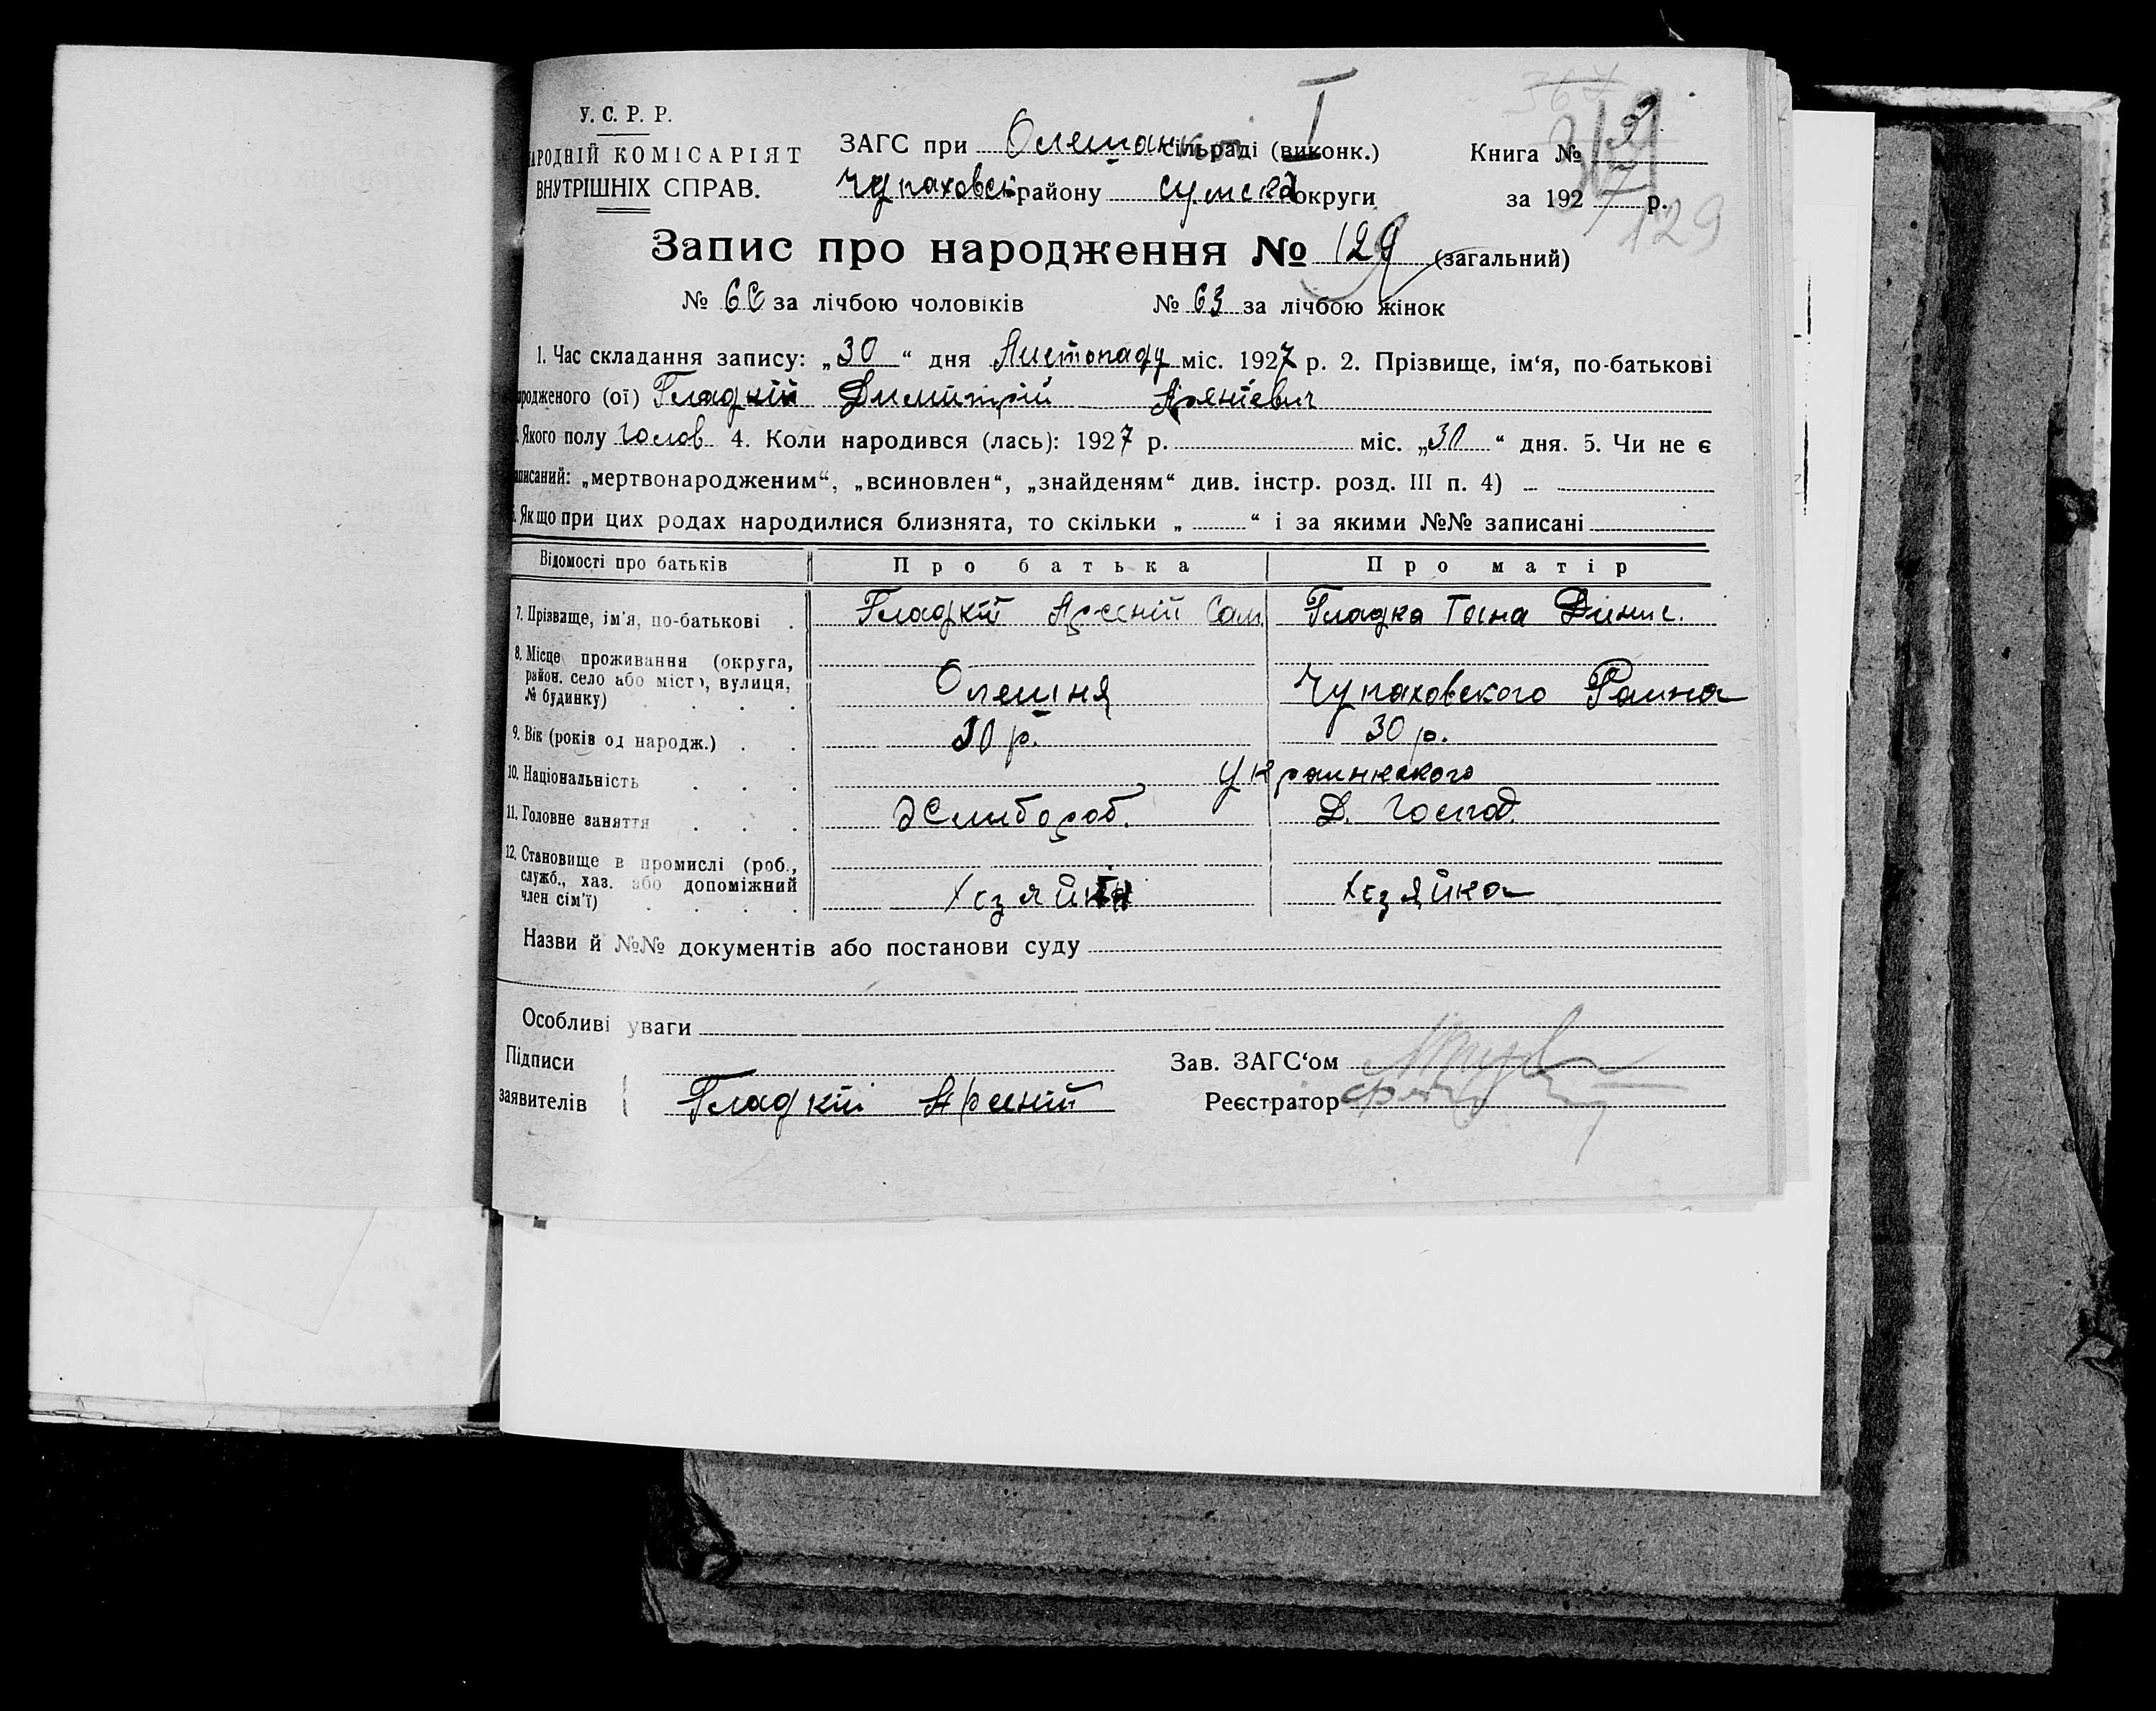 367
У. С. Р. Р.
НАРОДНІЙ КОМІСАРІЯТ
ВНУТРІШНІХ СПРАВ.
ЗАГС при сільраді (виконк.)
Чупаховск району Сумскої округи
Книга № 3
за 1927 р.
129
Запис про народження № 129 (загальний)
№ за лічбою чоловіків № 63 за лічбою жінок
1. Час складання запису: „30“ дня Листопаду міс. 1927 р. 2. Прізвище, ім‘я, по-батькові
народженого (ої) Гладкій Димитрій
Якого полу 4. Коли народився (лась): 1927 р. міс. „30“ дня. 5. Чи не є
записаний: „мертвонародженим“, „всиновлен“, „знайденям“ див. інстр. розд. III п. 4) –
Якщо при цих родах народилися близнята, то скільки „ “ і за якими №№ записані
Відомості про батьків Про батька Про матір
7. Прізвище, ім'я, по-батькові Гладкій Арсеній Сам. Гладка Динис.
8. Місце проживання (округа,
район, село або місто, вулиця,
№ будинку) Олешня Чупаховского
9. Вік (років од народж.) 30 р. 30 р.
10. Національність
11. Головне заняття Хлибороб. Д. Господ.
12. Становище в промислі (роб.,
служб., хаз. або допоміжний
член сім'ї) Хазяйин Хазяйка
Назви й №№ документів або постанови суду
Особливі уваги
Підписи
заявителів Гладкій Арсеній
Зав. ЗАГС‘ом
Реєстратор